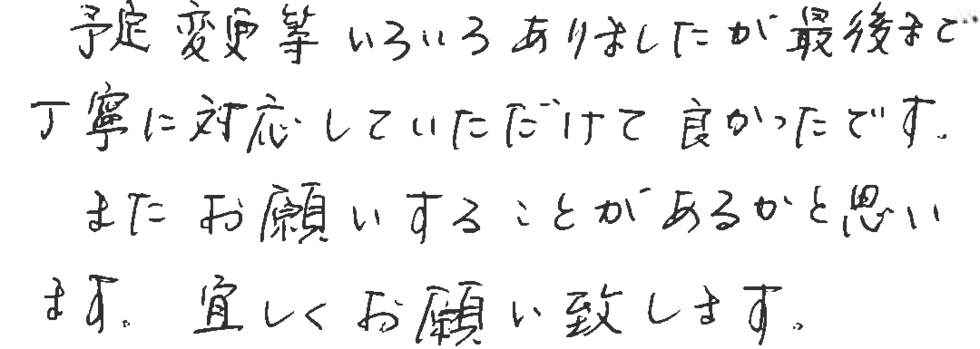 予定変更等いろいろありましたが最後まで
丁寧に対応していただけて良かったです。
またお願いすることがあるかと思い
ます。宜しくお願い致します。